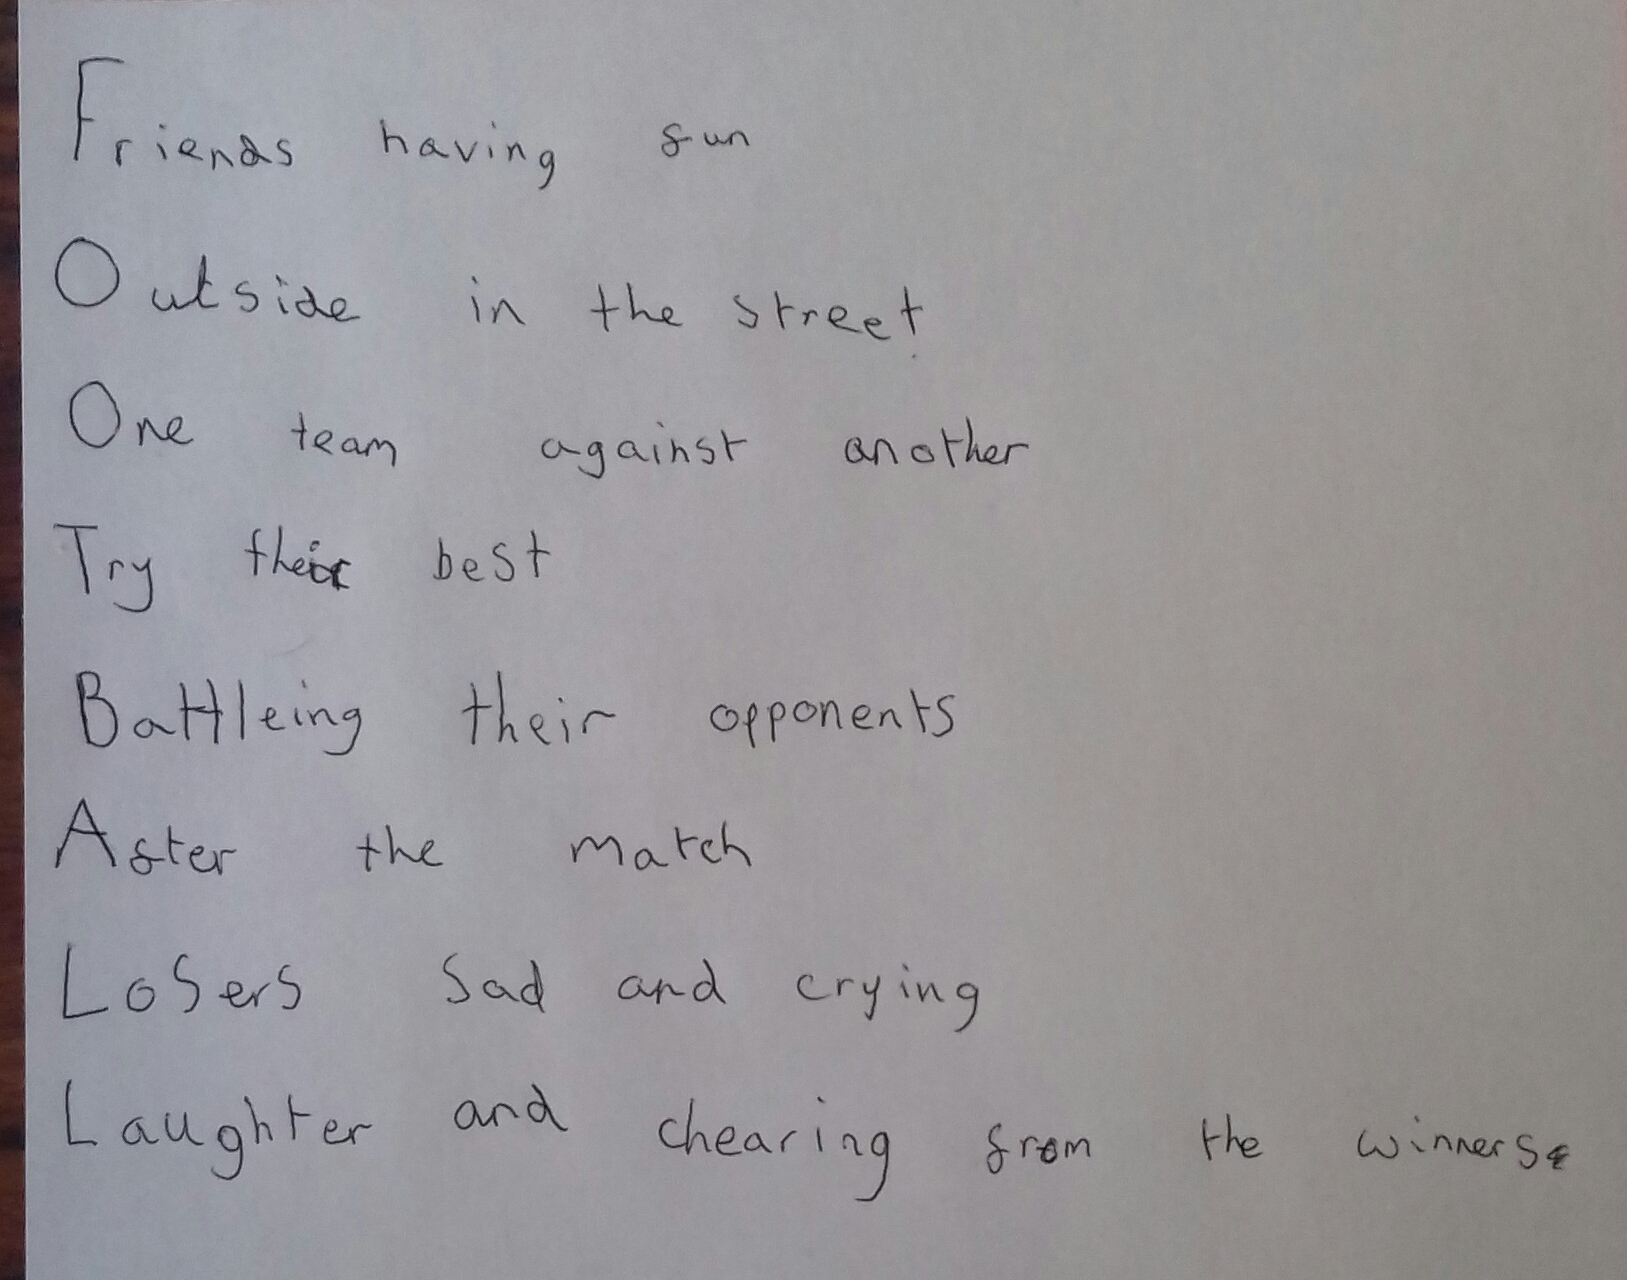 Friends having fun
Outside in the street
One team against another
Try their best
Battleing their opponents
After the match
Losers sad and crying
Laughter and chearing from the winners.